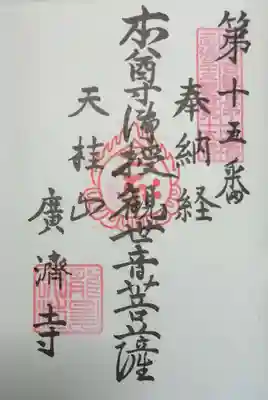 第十五番
奉納経
本尊准提観世音菩薩
天桂山
廣濟寺